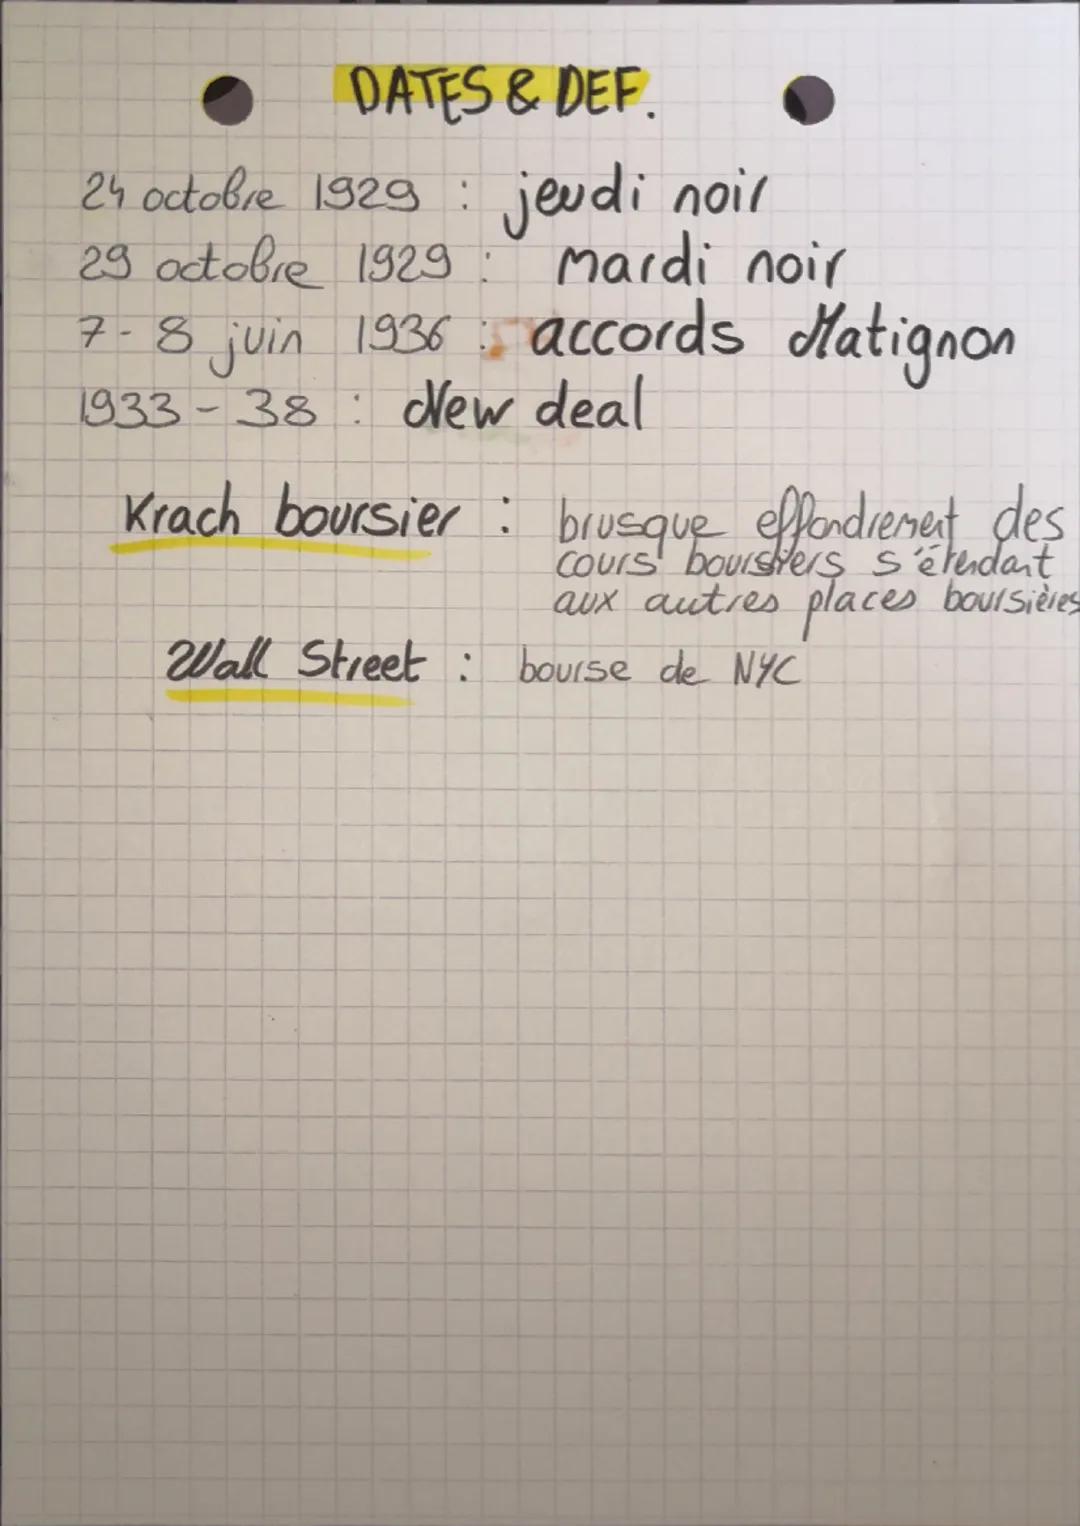 DATES & DEF.
24 octobre 1929 : jeudi noir
29 octobre 1929 : mardi noir
7-8 juin 1936 : accords Matignon
1933-38 : New deal
Krach boursier : brusque effondrement des
cours boursiers s'étendant
aux autres places boursières
Wall Street : bourse de NYC